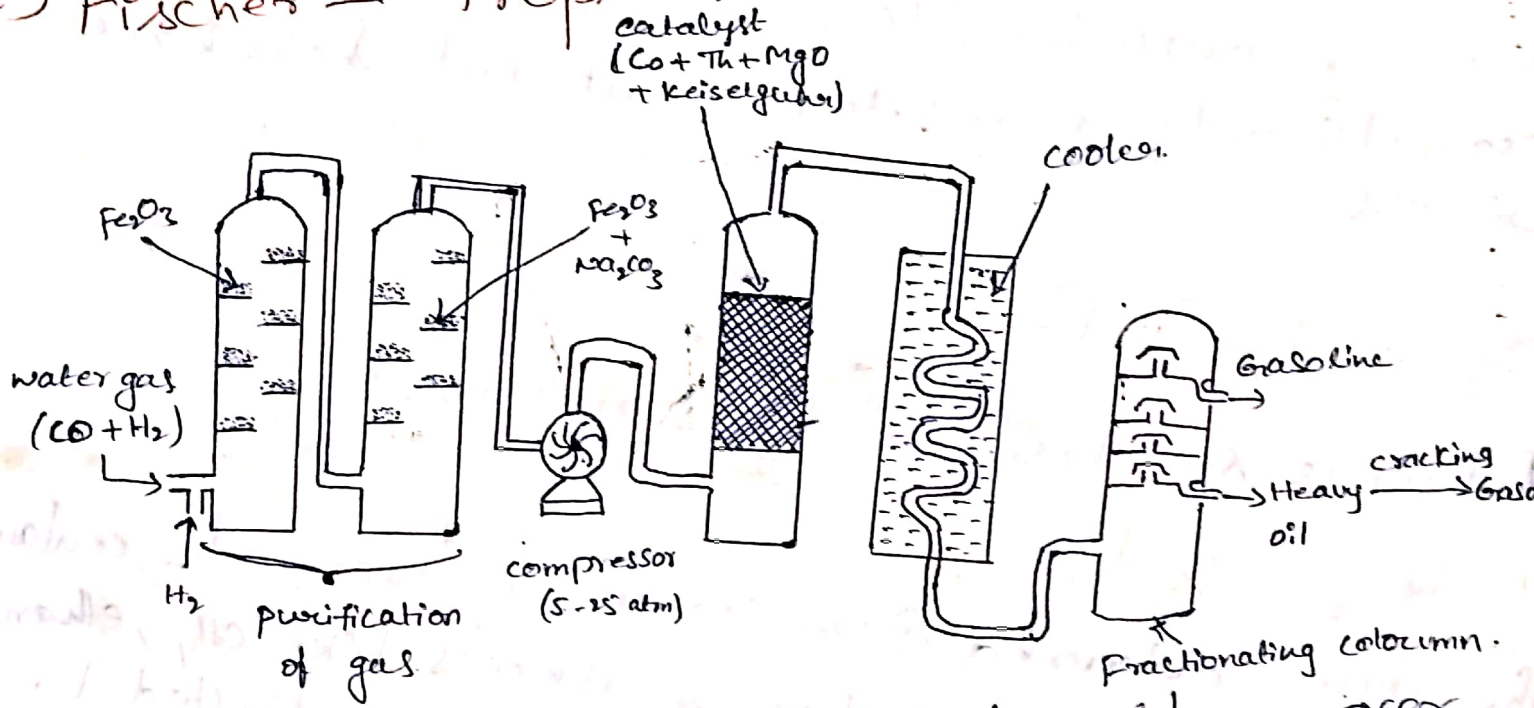 Fischer - Trop
catalyst
(Co + Th + MgO
+ Keiselguhr)
cooler.
Fe2O3
Fe2O3
+
Na2CO3
water gas
(CO + H2)
H2
purification
of gas
compressor
(5-25 atm)
Gasoline
cracking
Heavy
oil
Gaso
Fractionating coloumn.